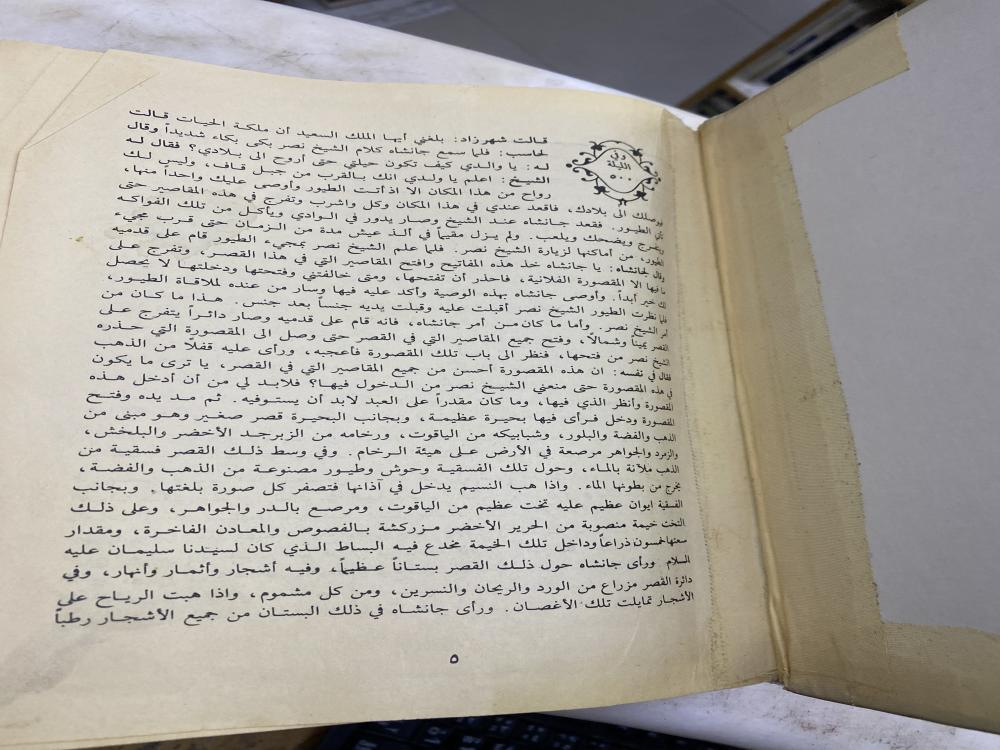 وفي
الليلة
٥٠٠
قالت شهرزاد: بلغني أيها الملك السعيد أن ملكة الحيات قالت
لحاسب: فلما سمع جانشاه كلام الشيخ نصر بكى بكاء شديداً وقال
له: يا والدي كيف تكون حيلتي حتى أروح الى بلادي؟ فقال له
الشيخ: اعلم يا ولدي انك بالقرب من جبل قاف، وليس لك
رواح من هذا المكان الا اذ أتت الطيور وأوصى عليك واحداً منها،
فيوصلك الى بلادك، فاقعد عندي في هذا المكان وكل واشرب وتفرج في هذه المقاصير حتى
تأتي الطيور. فقعد جانشاه عند الشيخ وصار يدور في الوادي ويأكل من تلك الفواكه
ويتفرج ويضحك ويلعب. ولم يزل مقيماً في ألذ عيش مدة من الزمان حتى قرب مجيء
الطيور، من أماكنها لزيارة الشيخ نصر. فلما علم الشيخ نصر بمجيء الطيور قام على قدميه
وقال لجانشاه: يا جانشاه خذ هذه المفاتيح وافتح المقاصير التي في هذا القصر، وتفرج على
ما فيها الا المقصورة الفلانية، فاحذر أن تفتحها، ومتى خالفتني وفتحتها ودخلتها لا يحصل
لك خير أبداً. وأوصى جانشاه بهذه الوصية وأكد عليه فيها وسار من عنده لملاقاة الطيور،
فلما نظرت الطيور الشيخ نصر أقبلت عليه وقبلت يديه جنساً بعد جنس. هذا ما كان من
أمر الشيخ نصر. وأما ما كان من أمر جانشاه، فانه قام على قدميه وصار دائراً يتفرج على
القصر يميناً وشمالاً، وفتح جميع المقاصير التي في القصر حتى وصل الى المقصورة التي حذره
الشيخ نصر من فتحها، فنظر الى باب تلك المقصورة فأعجبه، ورأى عليه قفلاً من الذهب
فقال في نفسه: ان هذه المقصورة أحسن من جميع المقاصير التي في القصر، يا ترى ما يكون
في هذه المقصورة حتى منعني الشيخ نصر من الدخول فيها؟ فلابد لي من أن أدخل هذه
المقصورة وأنظر الذي فيها، وما كان مقدراً على العبد لابد أن يستوفيه. ثم مد يده وفتح
المقصورة ودخل فرأى فيها بحيرة عظيمة، وبجانب البحيرة قصر صغير وهو مبنى من
الذهب والفضة والبلور، وشبابيكه من الياقوت، ورخامه من الزبرجد الأخضر والبلخش،
والزمرد والجواهر مرصعة في الأرض على هيئة الرخام. وفي وسط ذلك القصر فسقية من
الذهب ملآنة بالماء، وحول تلك الفسقية وحوش وطيور مصنوعة من الذهب والفضة،
يخرج من بطونها الماء. واذا هب النسيم يدخل في آذانها فتصفر كل صورة بلغتها. وبجانب
الفسقية ايوان عظيم عليه تخت عظيم من الياقوت، ومرصع بالدر والجواهر، وعلى ذلك
التخت خيمة منصوبة من الحرير الأخضر مزركشة بالفصوص والمعادن الفاخرة، ومقدار
سعتها خمسون ذراعاً وداخل تلك الخيمة مخدع فيه البساط الذي كان لسيدنا سليمان عليه
السلام. ورأى جانشاه حول ذلك القصر بستاناً عظيماً، وفيه أشجار وأثمار وأنهار، وفي
دائرة القصر مزراع من الورد والريحان والنسرين، ومن كل مشموم، واذا هبت الرياح على
الأشجار تمايلت تلك الأغصان. ورأى جانشاه في ذلك البستان من جميع الأشجار رطباً
٥